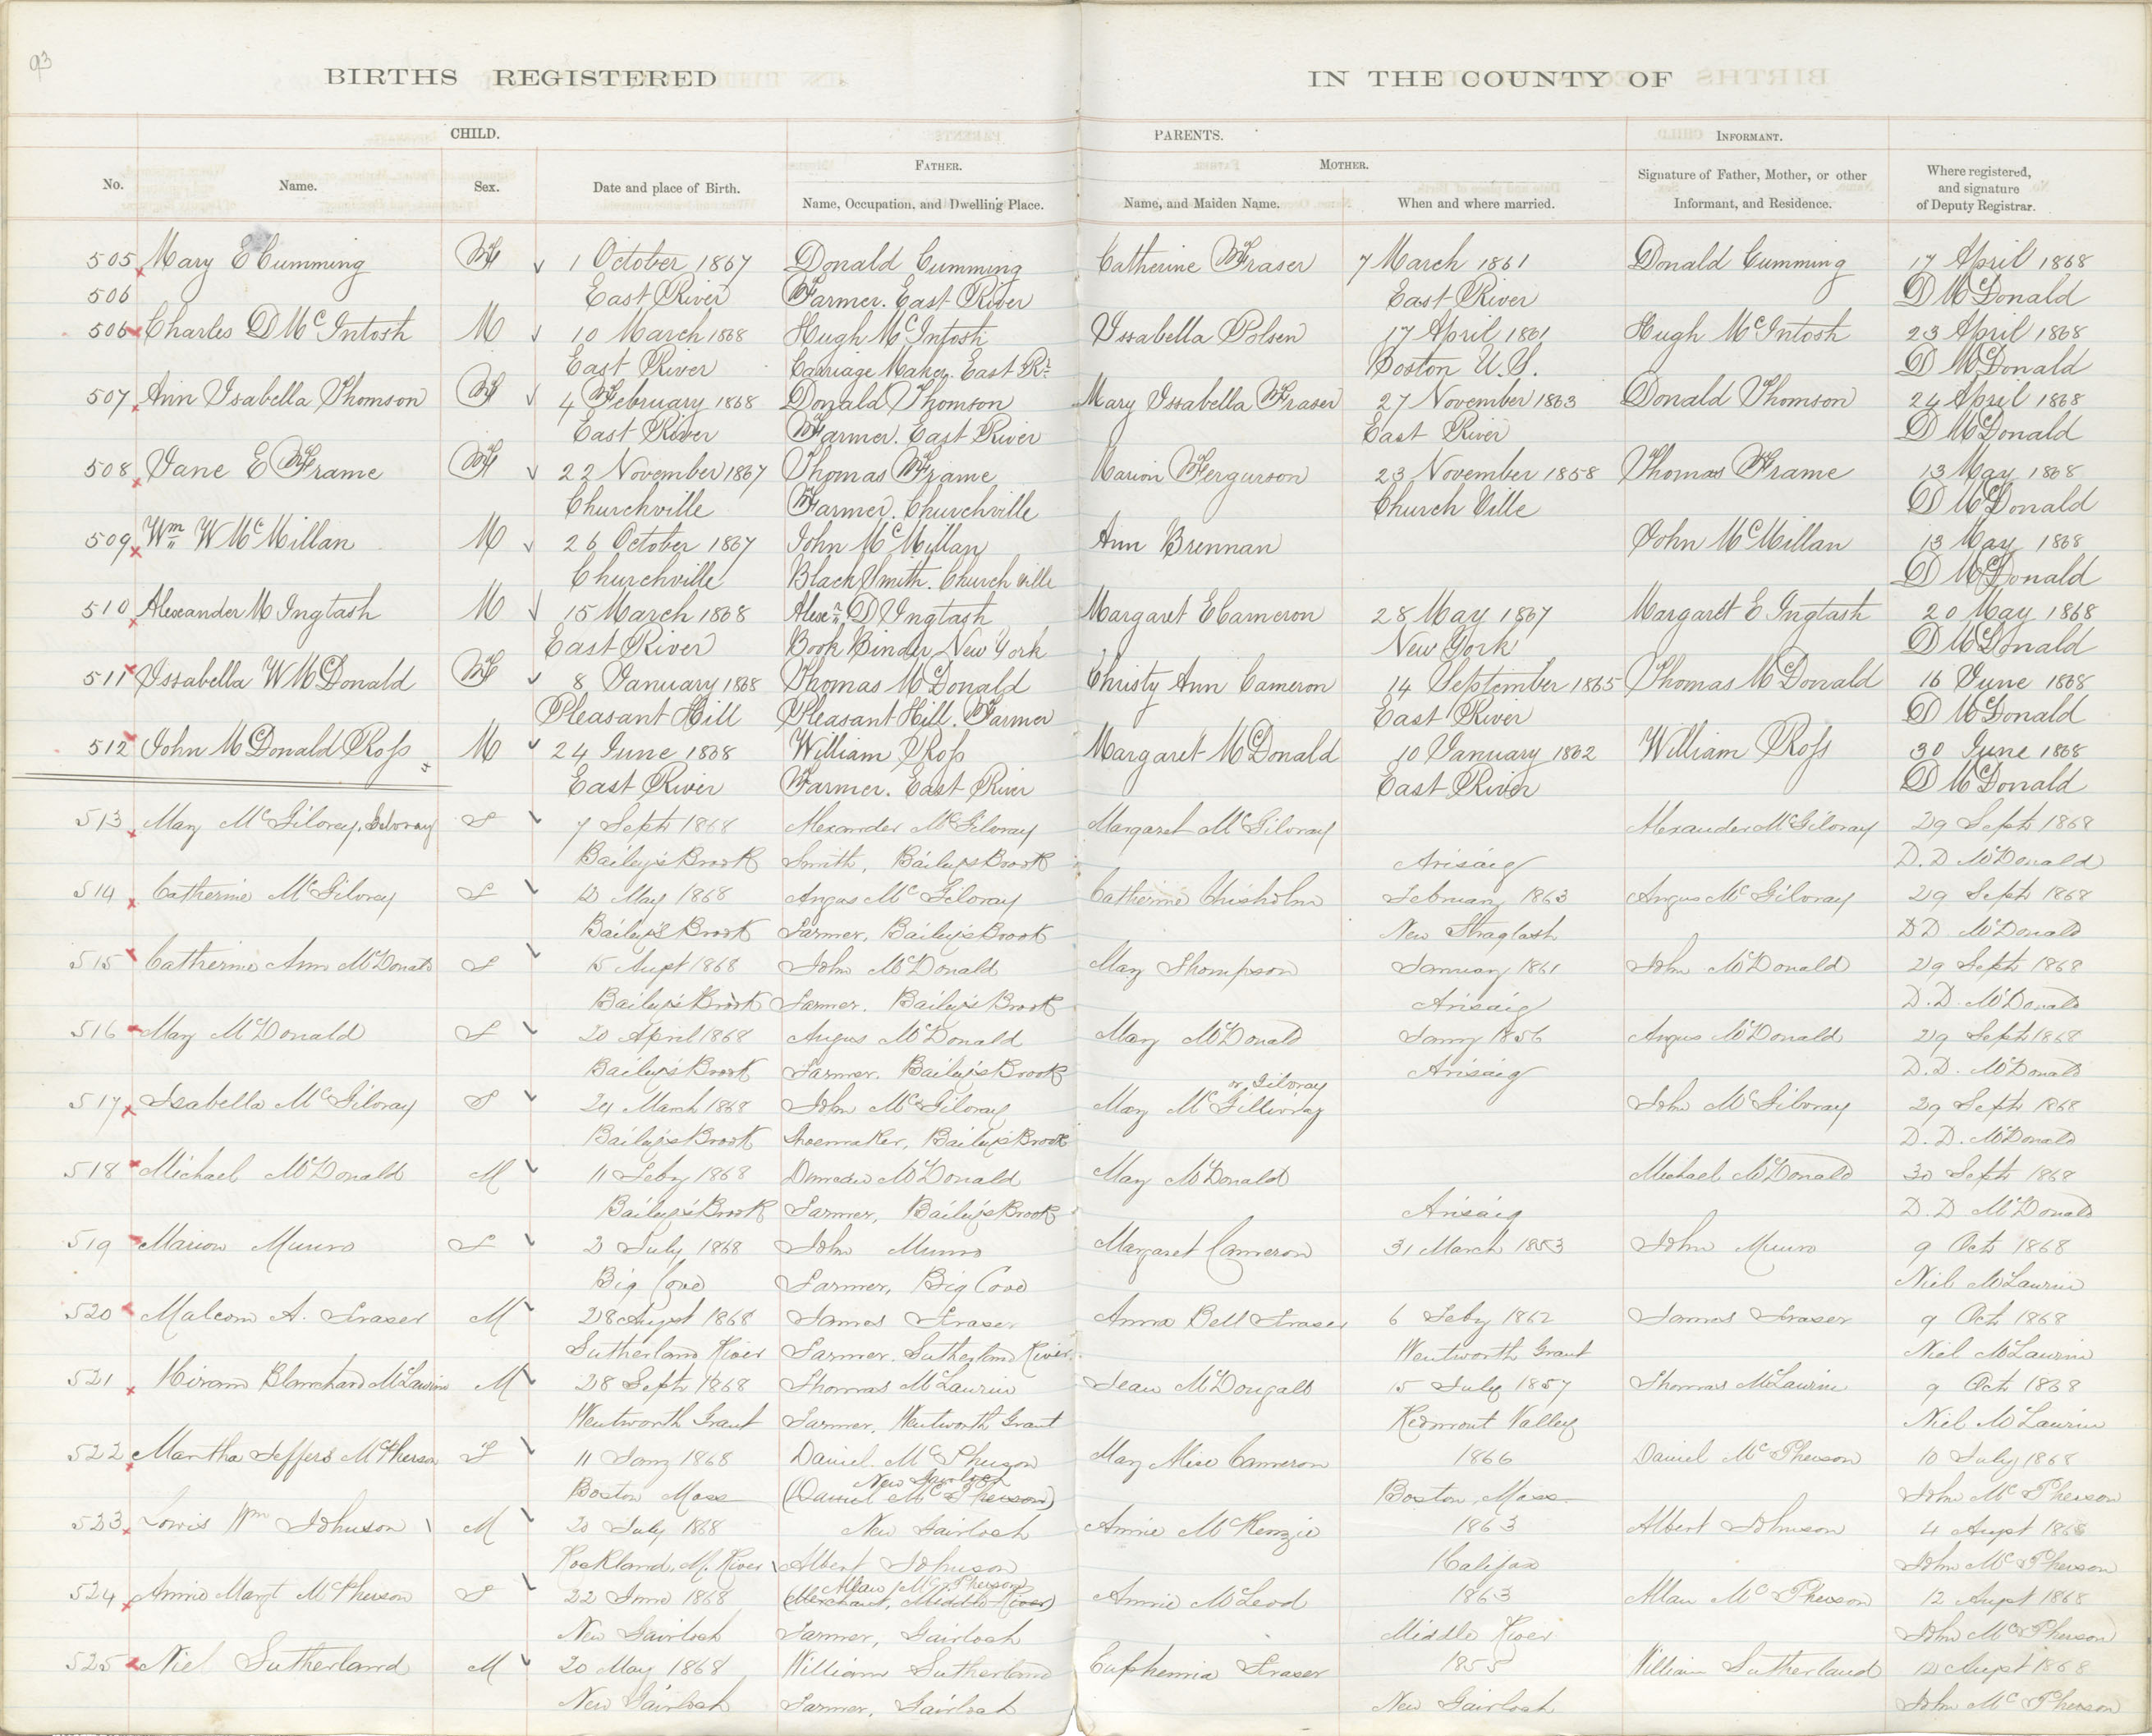 93
BIRTHS REGISTERED IN THE COUNTY OF
CHILD. PARENTS. INFORMANT.
FATHER. MOTHER.
No. Name. Sex. Date and place of Birth. Name, Occupation, and Dwelling Place. Name, and Maiden Name. When and where married. Signature of Father, Mother, or other Informant, and Residence. Where registered, and signature of Deputy Registrar.
505 Mary E Cumming F 1 October 1867 Donald Cumming Catherine Fraser 7 March 1861 Donald Cumming 17 April 1868
506 East River Farmer. East River East River D McDonald
506 Charles D McIntosh M 10 March 1868 Hugh McIntosh Issabella Polsen 17 April 1861 Hugh McIntosh 23 April 1868
East River Carriage Maker. East Rr Boston U.S. D McDonald
507 Ann Isabella Thomson F 4 February 1868 Donald Thomson Mary Issabella Fraser 27 November 1863 Donald Thomson 24 April 1868
East River Farmer. East River East River D McDonald
508 Jane E Frame F 22 November 1867 Thomas Frame Marion Fergurson 23 November 1858 Thomas Frame 13 May 1868
Churchville Farmer. Churchville Church Ville D McDonald
509 Wm W McMillan M 26 October 1867 John McMillan Ann Brennan John McMillan 13 May 1868
Churchville Black Smith. Church ville D McDonald
510 Alexander M Ingtash M 15 March 1868 Alexr D Ingtash Margaret E Cameron 28 May 1867 Margaret E Ingtash 20 May 1868
East River Book Binder New York New York D McDonald
511 Issabella W McDonald F 8 January 1868 Thomas McDonald Christy Ann Cameron 14 September 1865 Thomas McDonald 16 June 1868
Pleasant Hill Pleasant Hill. Farmer East River D McDonald
512 John McDonald Ross M 24 June 1868 William Ross Margaret McDonald 10 January 1862 William Ross 30 June 1868
East River Farmer. East River East River D McDonald
513 Mary McGilvrey, Gilvray F 7 Sept 1868 Alexander McGilvray Margaret McGilvray Alexander McGilvray 29 Sept 1868
Bailey's Brook Smith, Bailey's Brook Arisaig D. D McDonald
514 Catherine McGilvray F 12 May 1868 Angus McGilvray Catherine Chisholm February 1863 Angus McGilvray 29 Sept 1868
Bailey's Brook Farmer, Bailey's Brook New Straglash D D McDonald
515 Catherine Ann McDonald F 15 Augst 1868 John McDonald Mary Thompson January 1861 John McDonald 29 Sept 1868
Bailey's Brook Farmer. Bailey's Brook Arisaig D. D. McDonald
516 Mary McDonald F 20 April 1868 Angus McDonald Mary McDonald Jany 1856 Angus McDonald 29 Sept 1868
Bailey's Brook Farmer. Bailey's Brook Arisaig D. D. McDonald
or Gilvray
517 Isabella McGilvray F 24 March 1868 John McGilvray Mary McGillivray John McGilvray 29 Sept 1868
Bailey's Brook Shoemaker, Bailey's Brook D. D. McDonald
518 Michael McDonald M 11 Feby 1868 McDonald Mary McDonald Michael McDonald 30 Sept 1868
Bailey's Brook Farmer, Bailey's Brook Arisaig D. D McDonald
519 Marion Munro F 2 July 1868 John Munro Margaret Cameron 31 March 1853 John Munro 9 Oct 1868
Big Cove Farmer, Big Cove Niel McLaurin
520 Malcom A. Fraser M 28 August 1868 James Fraser Anna Bell Fraser 6 Feby 1862 James Fraser 9 Oct 1868
Sutherland River Farmer. Sutherland River. Wentworth Grant Niel McLaurin
521 Hiram Blanchard McLaurin M 28 Sept 1868 Thomas McLaurin Jean McDougald 15 July 1857 Thomas McLaurin 9 Oct 1868
Wentworth Grant Farmer, Wentworth Grant Valley Niel McLaurin
522 Martha Jeffers McPherson F 11 Jany 1868 Daniel McPherson Mary Alice Cameron 1866 Daniel McPherson 10 July 1868
New Gairloch
Boston Mass (Daniel McPherson) Boston, Mass John McPherson
523 Lowis Wm Johnson M 20 July 1868 New Gairloch Annie McKenzie 1863 Albert Johnson 4 Augst 1868
Rockland, M. River Albert Johnson Halifax John McPherson
Allan McPherson
524 Annie Margt McPherson F 22 June 1868 (Merchant, Middle River) Annie McLeod 1863 Allan McPherson 12 Augst 1868
New Gairloch Farmer, Gairloch Middle River John McPherson
525 Niel Sutherland M 20 May 1868 William Sutherland Euphemia Fraser 1855 William Sutherland 12 Augst 1868
New Gairloch Farmer, Gairloch New Gairloch John McPherson